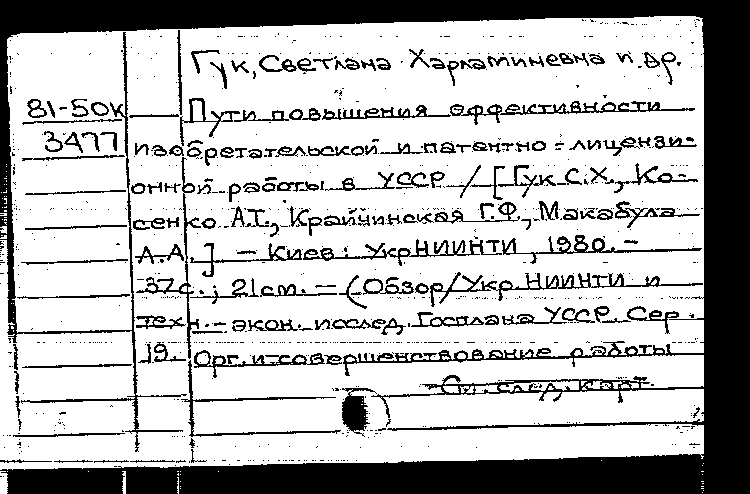 Гук, Светлана Харлампиевна и др.
81-50к Пути повышения эффективности
3477 изобретательской и патентно-лицензи-
онной работы в УССР / [Гук С.Х., Ко-
сенко А.Т., Крайчинская Г.Ф., Макабула
А.А.] - Киев: УкрНИИНТИ, 1980. -
37с.; 21см. - (Обзор/Укр. НИИНТИ и
техн.-экон. исслед. Госплана УССР. Сер.
19. Орг. и совершенствование работы
См. след. карт.